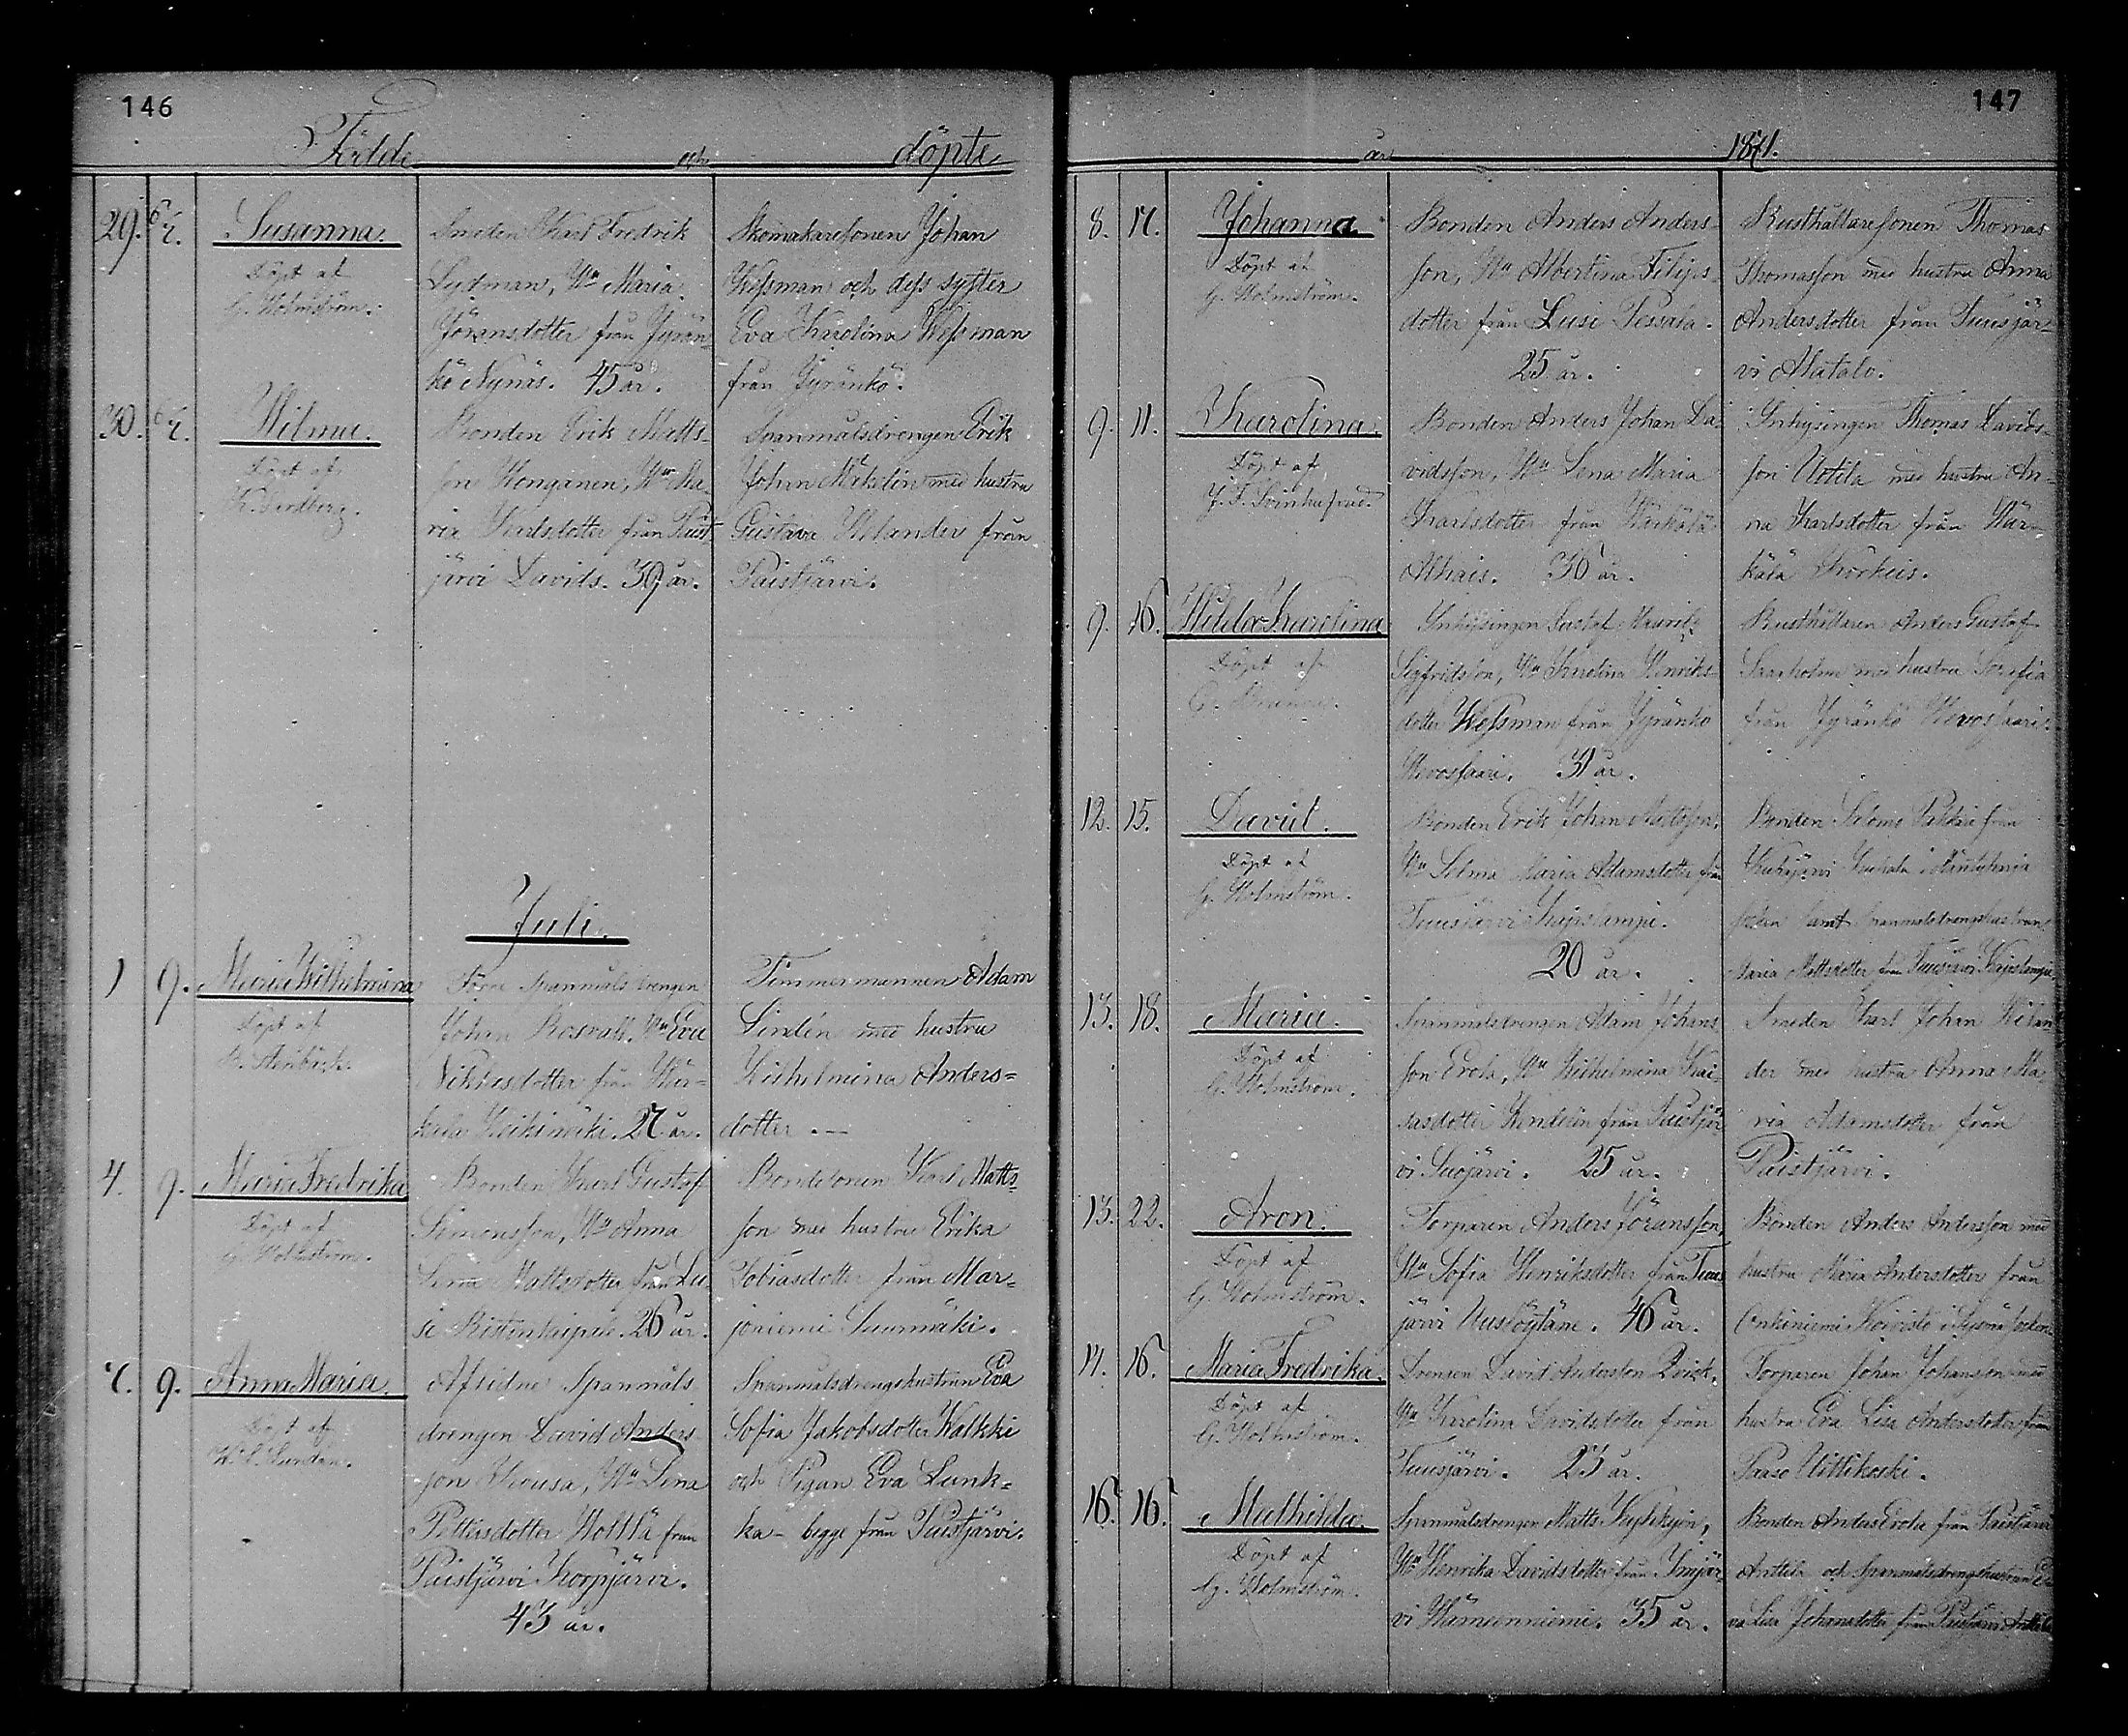 146
Födde och döpte
29. 6/7. Susanna.
Döpt af
G. Holmström.
Smeden Karl Fredrik
Lydman, Hu Maria
Göransdotter från Jyrän-
kö Nynäs. 45 år.
Skomakaresonen Johan
Wessman och dess syster
Eva Karolina Wessman
från Jyränkö.
30. 6/7. Hilma.
Döpt af
Bonden Erik Matts-
son Honganen, Hu Ma-
ria Karlsdotter från Paist
järvi Davids. 39 år.
Spanmålsdrengen Erik
Johan Mäkelin med hustru
Gustava Helander från
Paistjärvi.
Juli.
1 9. Maria Wilhelmina
Döpt af
Förre Spanmålsdrengen
Johan Rosvall, Hu Eva
Niklasdotter från Här-
kälä Heikinmäki. 27 år.
Timmermannen Adam
Lindén med hustru
Wilhelmina Anders=
dotter.—
4. 9. Maria Fredrika
Döpt af
G. Holmström.
Bonden Karl Gustaf
Simonsson, Hu Anna
Lena Mattsdotter från Lu-
si Kittenkaipale. 26 år.
Bondesonen Karl Matts-
son med hustru Erika
Tobiasdotter från Mar=
joniemi Suurmäki.
7. 9. Anna Maria.
Döpt af
Afsidne Spanmåls
drengen David Anders
son Krousa, Hu Lena
Pettersdotter Holttä från
Paistjärvi Korpjärvi.
43 år.
Spanmålsdrengshustrun Eva
Sofia Jakobsdotter Walkki
och Pigan Eva Lunk=
ka – begge från Paistjärvi.
147
år 1871.
8. 17. Johanna
Döpt af
G. Holmström.
Bonden Anders Anders-
son, Hu Albertina Filips
dotter från Lusi Pessala.
25 år.
Rusthållaresonen Thomas
Thomasson med hustru Anna
Andersdotter från Tuusjär-
vi Matalo.
9. 11. Karolina.
Döpt af
Bonden Anders Johan Da-
vidsson, Hu Lena Maria
Karlsdotter från Härkälä
Alhais. 36 år.
Inhysingen Thomas Davids-
son Uotila med hustru An-
na Karlsdotter från Här-
kälä
9. 16. Hilda Karolina
Döpt af
Inhysingen Gustaf
Sigfridsson, Hu Karolina Henriks-
dotter Wessman från Jyränkö
Hevossaari. 31 år.
Rusthållaren Anders Gustaf
med hustru Sofia
från Jyränkö Hevossaari.
12. 15. David.
Döpt af
G. Holmström.
Bonden Erik Johan Mattsson,
Hu Selma Maria Adamsdotter från
Tuusjärvi Kajslampi.
20 år.
Bonden från
Mäntyharju
socken samt Spanmålsdrengshustrun
Maria Mattsdotter från Tuusjärvi Kajslampi.
13. 18. Maria.
Döpt af
G. Holmström.
Spanmålsdrengen Adam Johans
son Erola, Hu Wilhelmina Kai-
sasdotter Wendelin från Paistjär-
vi Suojärvi. 25 år.
Smeden Karl Johan Helan-
der med hustru Anna Ma-
ria Adamsdotter från
Paistjärvi.
13. 22. Aron.
Döpt af
G. Holmström.
Torparen Anders Göransson,
Hu Sofia Henriksdotter från Tuus
järvi Uuslöytäne. 46 år.
Bonden Anders Andersson med
hustru Maria Andersdotter från
Onkiniemi Koivisto i Sysmä socken.
14. 16. Maria Fredrika.
Döpt af
G. Holmström.
Drengen David Andersson Qvick,
Hu Karolina Davidsdotter från
Tuusjärvi. 23 år.
Torparen Johan Johansson med
hustru Eva Lisa Andersdotter från
Paaso Uittikoski.
16. 16. Mathilda.
Döpt af
G. Holmström.
Spanmålsdrengen Matts
Hu Henrika Davidsdotter från Imjär-
vi Hämeenniemi. 35 år.
Bonden Anders Erola från Paistjärvi
Anttila och Spanmålsdrengshustrun E-
va Lisa Johansdotter från Paistjärvi Anttila